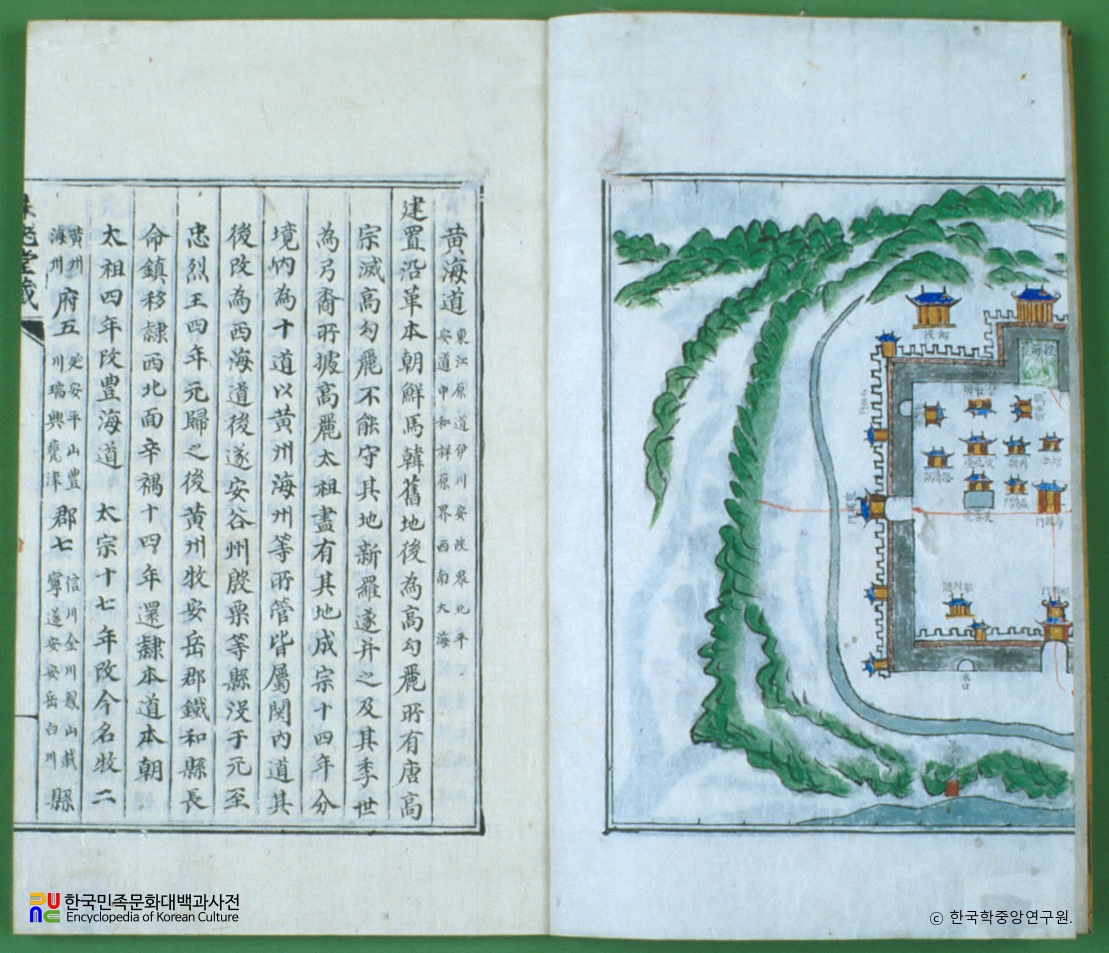 黄海道 東江原道伊川安峽界北平
安道中和祥原界西南大海
建置沿革本朝鮮馬韓舊地後為高勾麗所有唐高
宗滅高勾麗不能守其地新羅遂并之及其季世
為弓裔所據高麗太祖盡有其地成宗十四年分
境內為十道以黄州海州等所管皆屬関內道其
後改為西海道後遂安谷州殷栗等縣沒于元至
忠烈王四年元歸之後黄州牧安岳郡鐵和縣長
命鎮移隸西北面辛禑十四年還隸本道本朝
太祖四年改豊海道 太宗十七年改今名牧二
黄州
海州 府五 延安平山豊
川瑞興甕津 郡七 信川金川鳳山載
寧遂安安岳白川 縣
水口
한국민족문화대백과사전
Encyclopedia of Korean Culture
© 한국학중앙연구원.